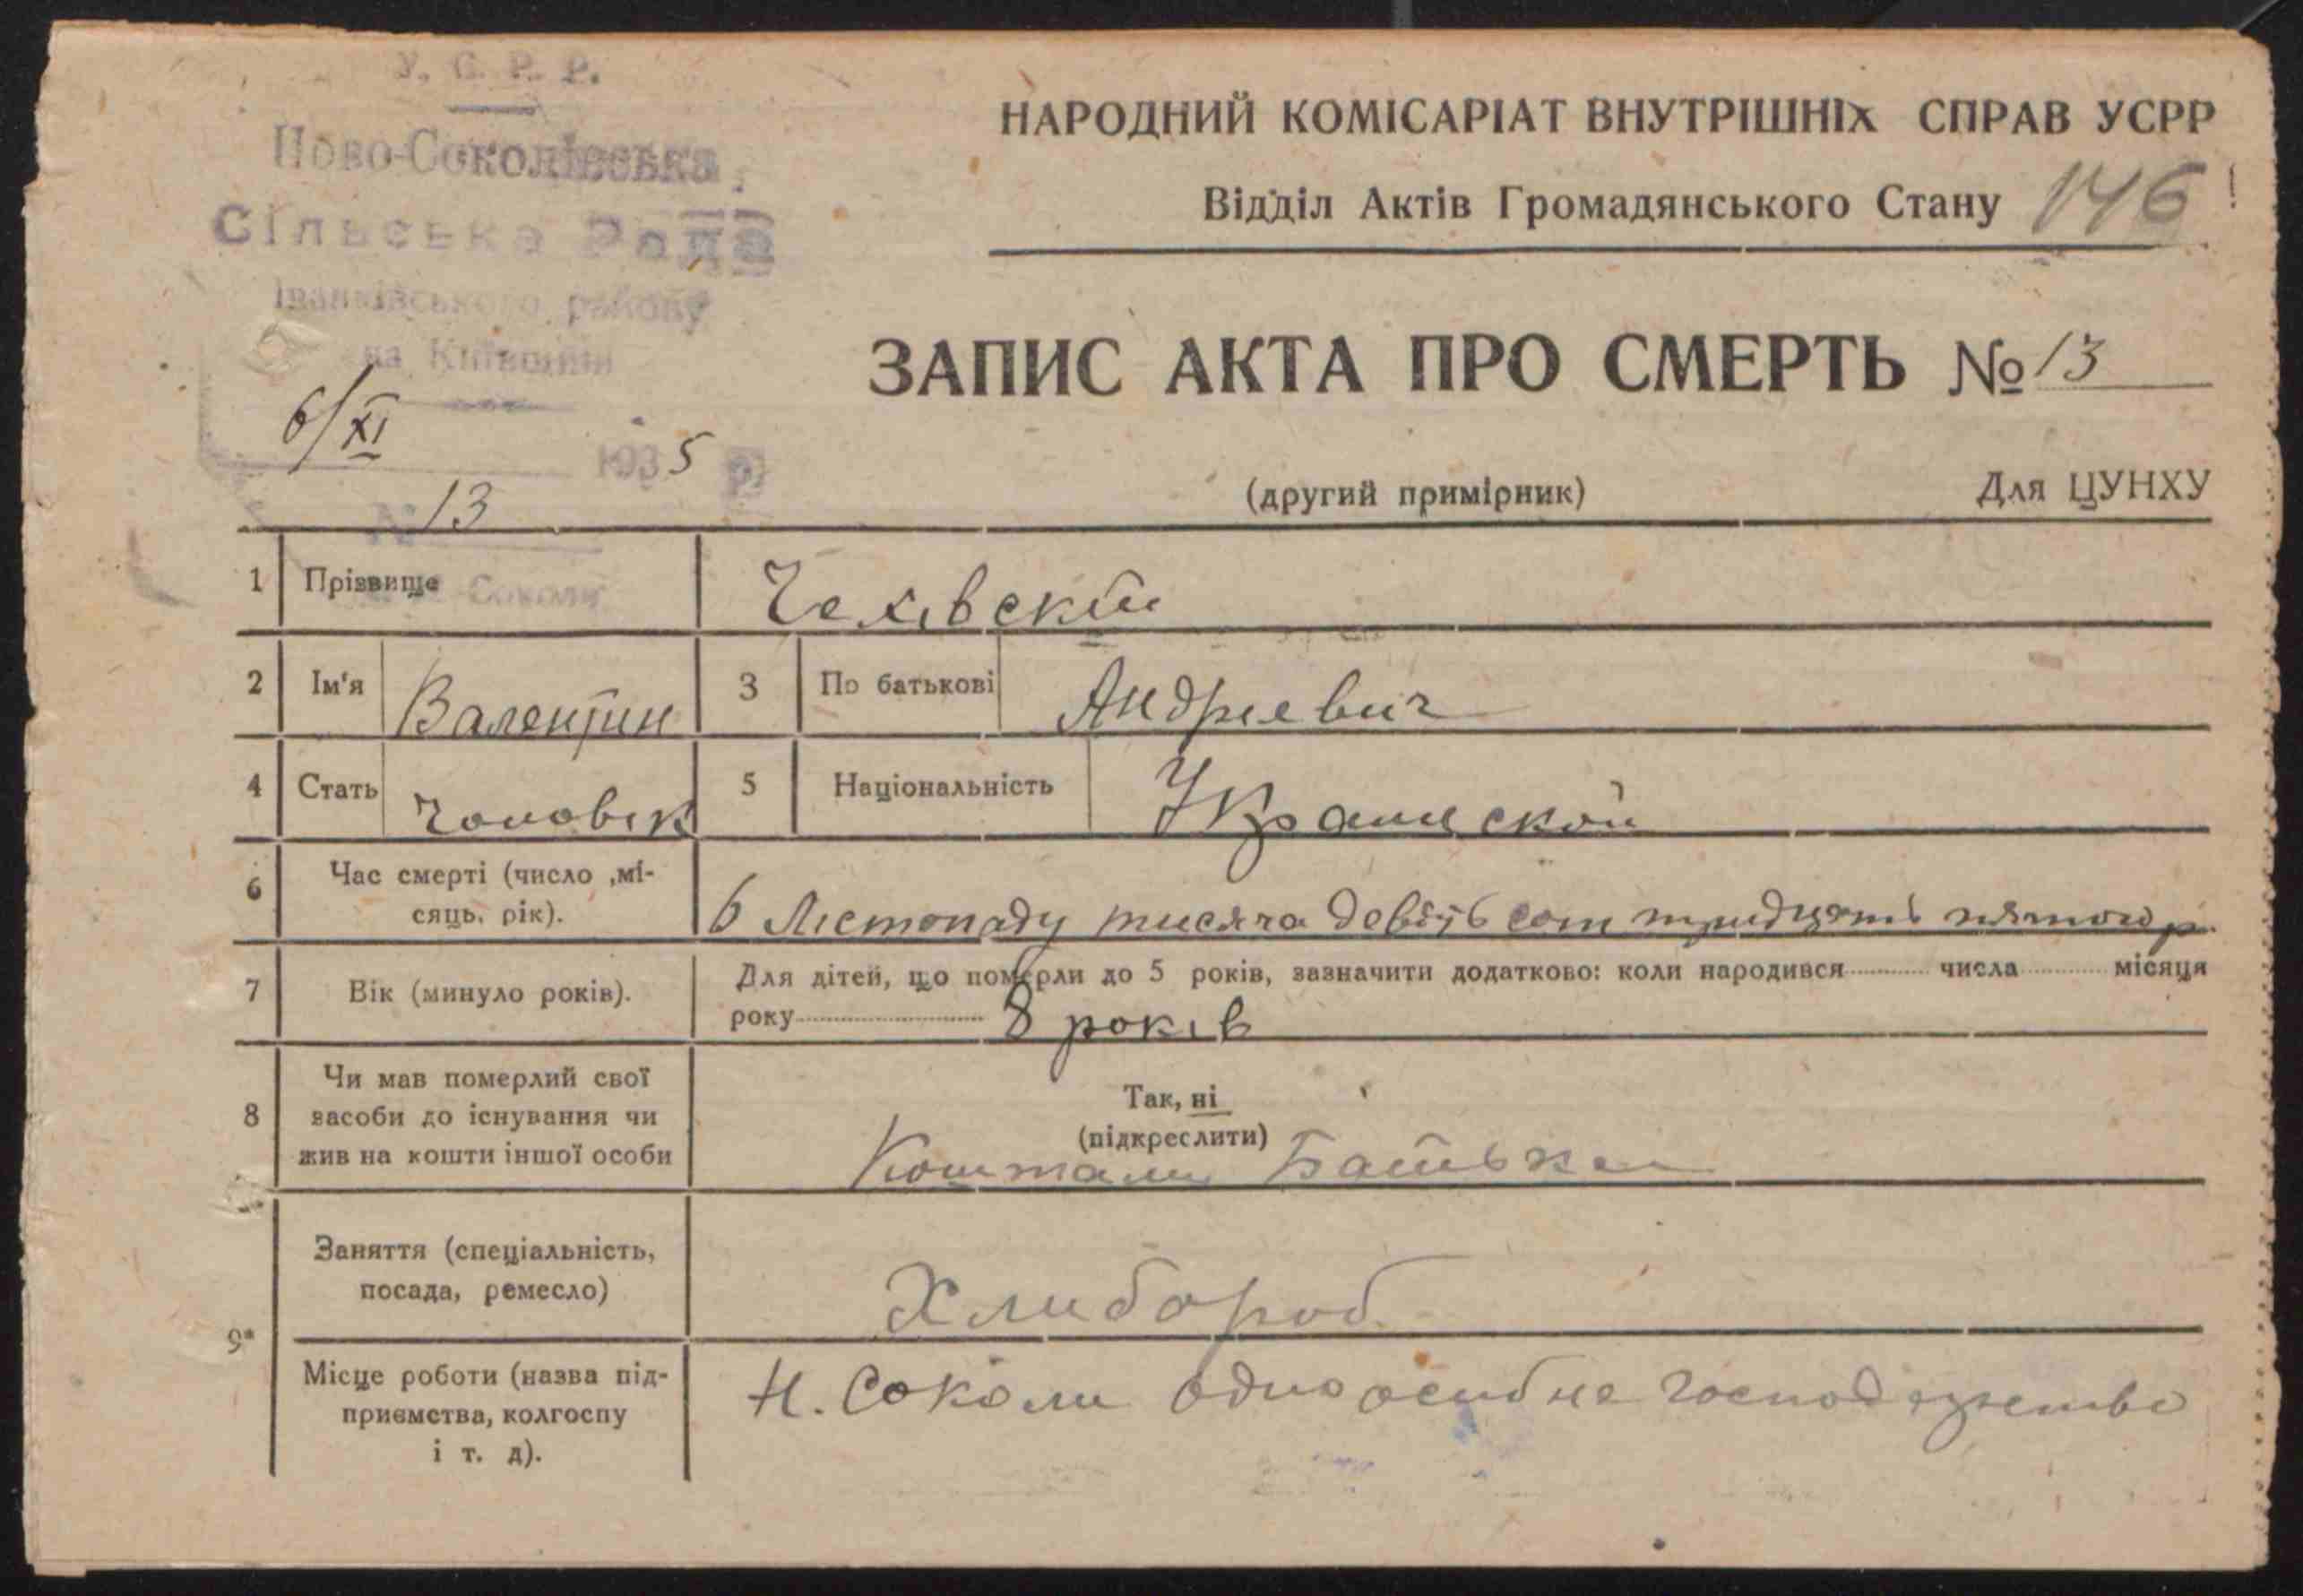 У. С. Р. Р.
Ново-Соколівська
Сільська Рада
Іванківського району
на Київщині
6/XI 1935 р.
№ 13
Соколи
НАРОДНИЙ КОМІСАРІАТ ВНУТРІШНІХ СПРАВ УСРР
Відділ Актів Громадянського Стану 146
ЗАПИС АКТА ПРО СМЕРТЬ № 13
(другий примірник) Для ЦУНХУ
1 Прізвище Чехівскій
2 Ім'я Валентин 3 По батькові Андріевич
4 Стать Чоловік 5 Національність Украинской
6 Час смерті (число ,мі-
сяць, рік). 6 Лістопаду тисяча девять сот тридцять пятого р.
7 Вік (минуло років). Для дітей, що померли до 5 років, зазначити додатково: коли народився числа місяця
року 8 років
8 Чи мав померлий свої
засоби до існування чи
жив на кошти іншої особи
Так, ні
(підкреслити)
Коштами Батька
9* Заняття (спеціальність,
посада, ремесло) Хлибороб
Місце роботи (назва під-
приємства, колгоспу
і т. д). Н. Соколи одноосибне господарство